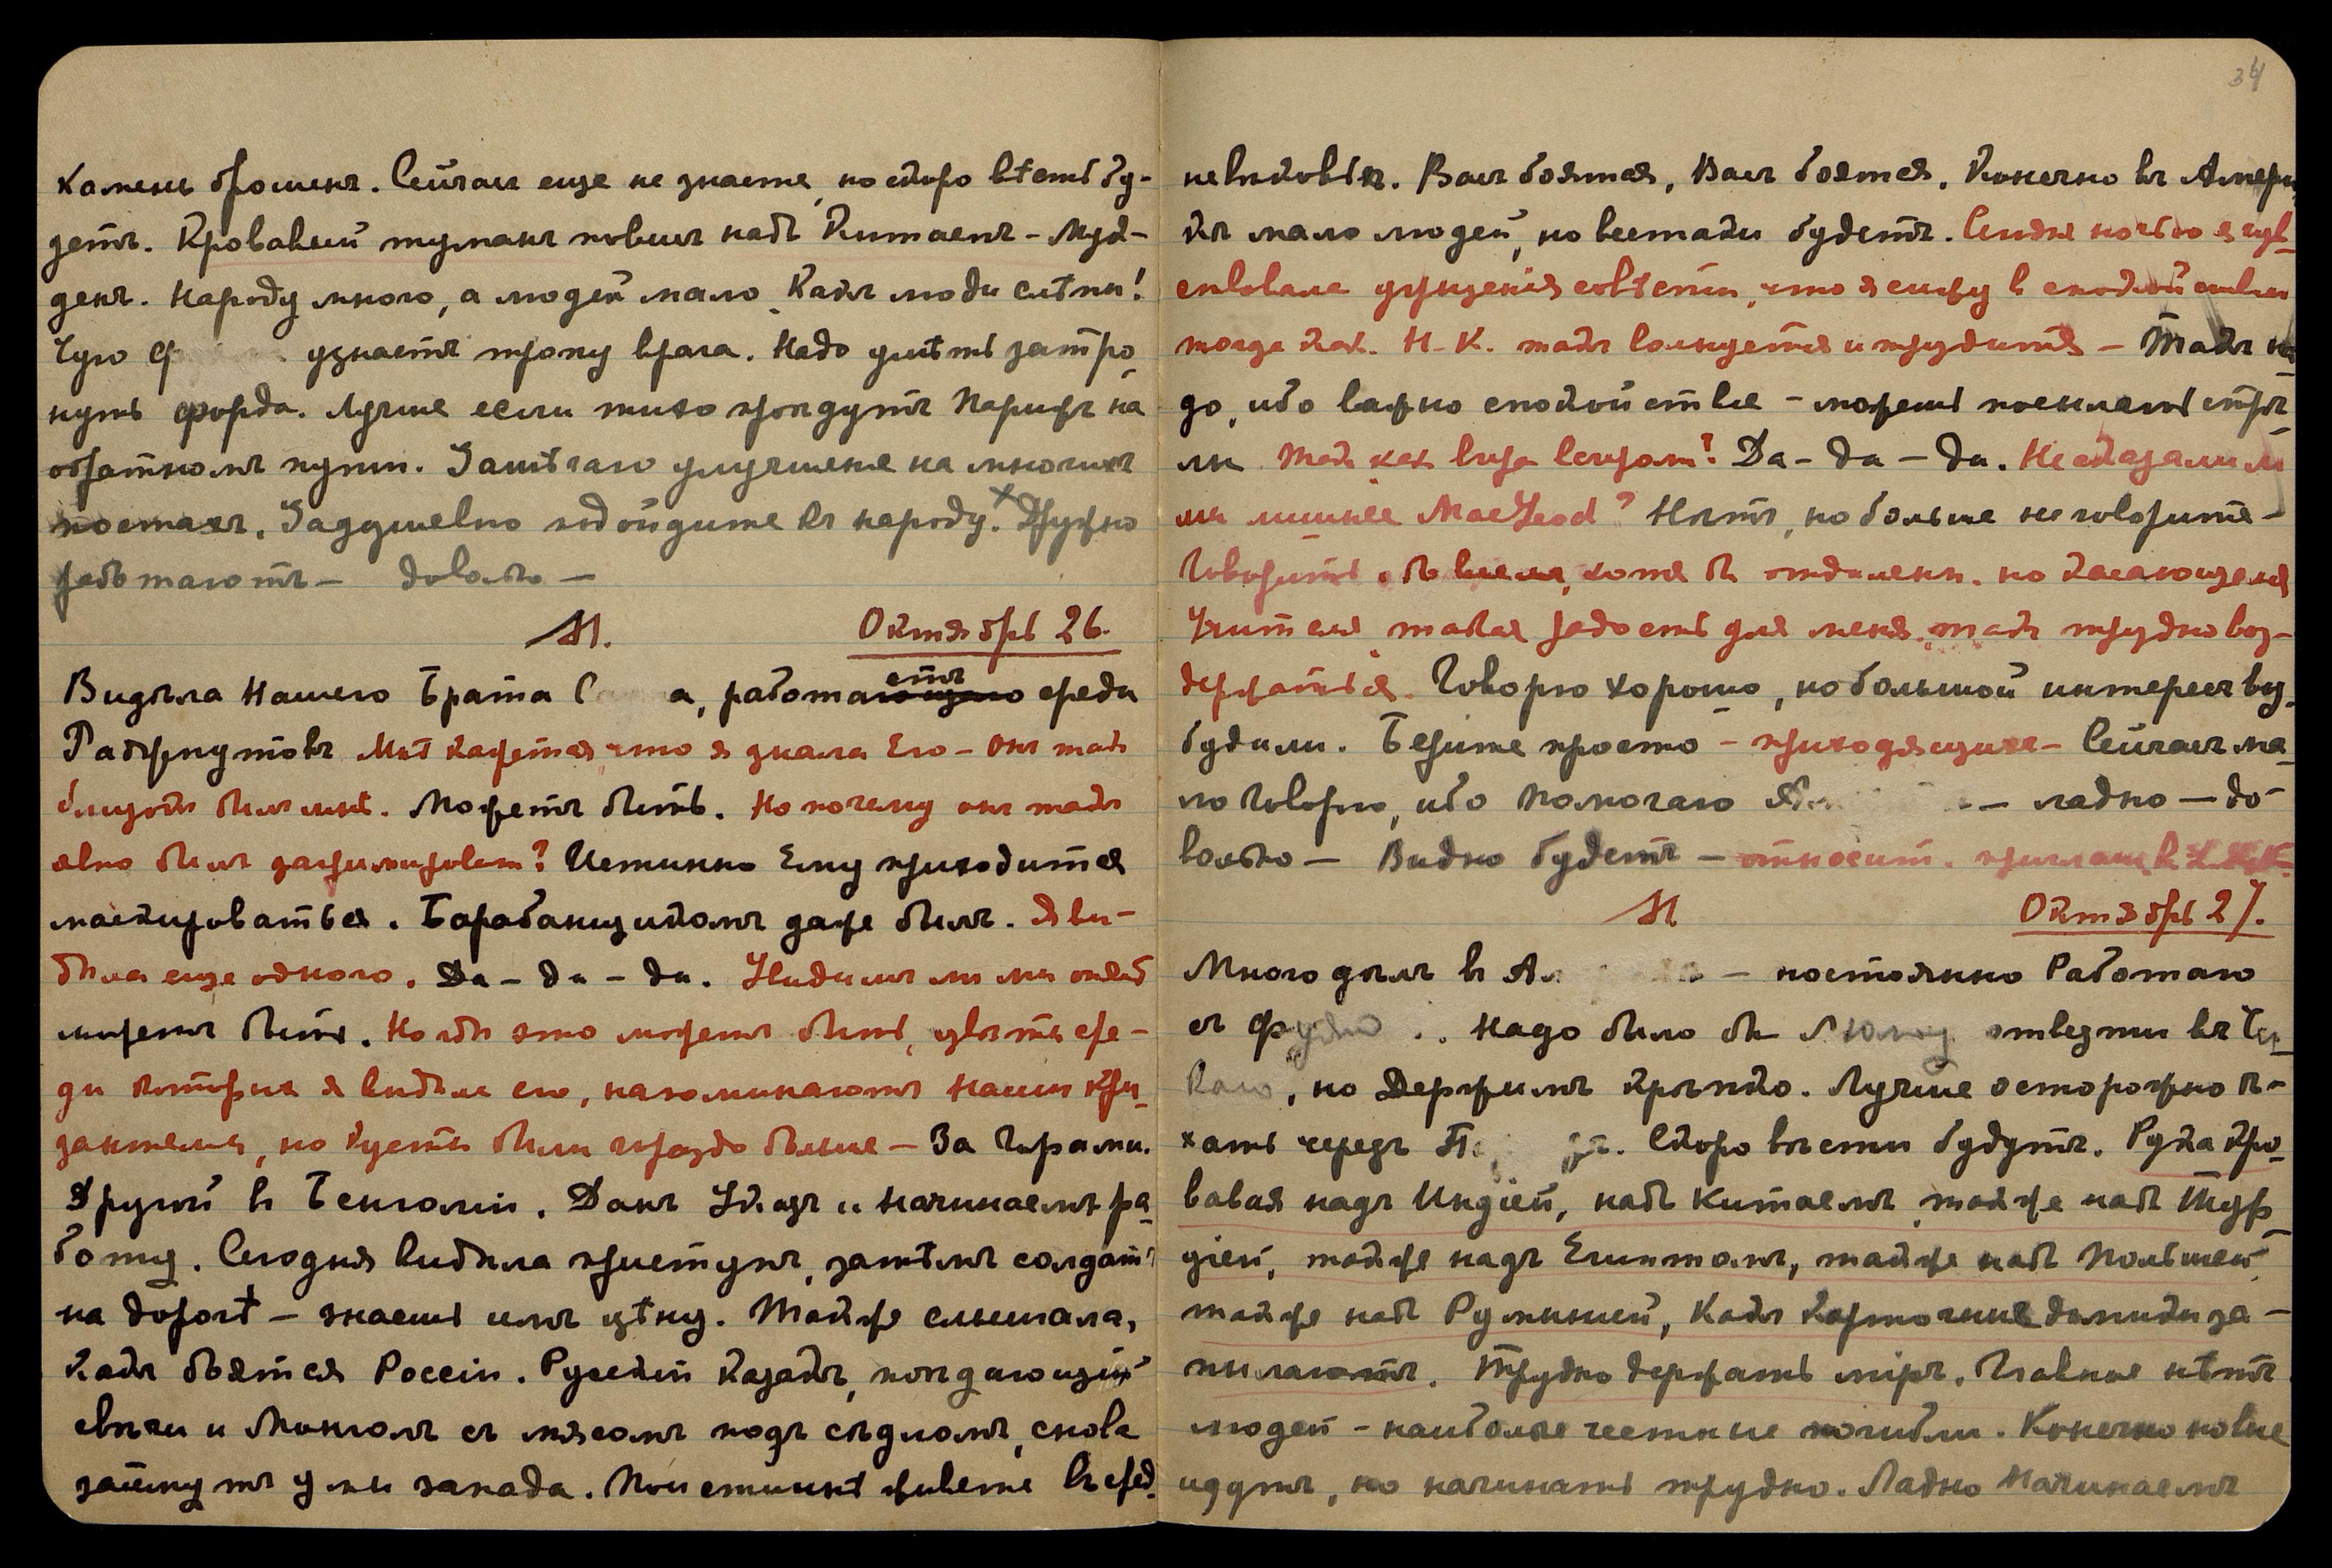 34
камень брошенъ. Сейчасъ еще не знаете, но скоро вѣсть бу-
детъ. Кровавый туманъ повисъ надъ Китаемъ – Мук-
денъ. Народу много, а людей мало. Какъ люди слѣпы!
Чую узнаетъ тропу врага. Надо умѣть затро-
нуть Форда. Лучше если тихо пройдутъ Парижъ на
обратномъ пути. Замѣчаю улучшение на многихъ
постахъ. Задушевно подойдите къ народу. Дружно
работаютъ – довольно –
М. Октябрь 26.
Видѣла Нашего Брата а, работаетъ среди
Раджпутовъ Мнѣ кажется что я знала Его – Онъ такъ
близокъ былъ мнѣ. Можетъ быть. Но почему онъ такъ
явно былъ загримированъ? Истинно Ему приходится
маскироваться. Барабанщикомъ даже былъ. Я ви-
дѣла еще одного. Да – да – да.
можетъ быть. Но гдѣ это можетъ быть, цвѣты сре-
ди которыхъ я видѣла его, напоминаютъ наши кри-
зантемы, но кусты были гораздо больше – За Горами.
Другой въ Бенгаліи. Данъ Указъ и начинаемъ ра-
боту. Сегодня видѣла приступъ, затѣмъ солдатъ
на дорогѣ – знаешь имъ цѣну. Также слышала,
какъ боятся Россіи. Русскій казакъ, поѣдающій
свѣчи и Монголъ съ мясомъ подъ сѣдломъ, снова
займутъ умы запада. Поистинѣ живете въ сред-
невѣковьѣ. Васъ боятся, Васъ боятся. Конечно въ Амери-
кѣ мало людей, но всетаки будетъ. ночью я чув-
ствовала угрызенія совѣсти, что я сижу в спокойствии
тогда как Н.К. такъ волнуется и трудится – Такъ на-
до, ибо важно спокойствие – можешь посылать стрѣ-
лы. Так как вчера вечером? Да – да – да. Не сказали ли
мы лишнее MacLeod? Нѣтъ, но больше не говорите –
Говорить о Васъ, хотя бы отдаленн. но касающееся
Учителя такая радость для меня, такъ трудно воз-
держаться. Говорю хорошо, но большой интересъ воз-
будили. Берите просто – приходящихъ – Сейчасъ ма-
ло Говорю, ибо Помогаю – ладно – до-
вольно – Видно будетъ – относит.
М. Октябрь 27.
Много дѣлъ въ – постоянно Работаю
съ Надо было бы отвезти въ Чи-
каго, но Держимъ крѣпко. Лучше осторожно ѣ-
хать черезъ Скоро вѣсти будутъ. Рука кро-
вавая надъ Индіей, надъ Китаемъ, также надъ Тур-
ціей, также надъ Египтомъ, также надъ Польшей,
также надъ Румыніей, Какъ карточные домики за-
пылаютъ. Трудно держать міръ. Главное нѣтъ
людей – наиболѣе честные погибли. Конечно новые
идутъ, но начинать трудно. Ладно Начинаемъ